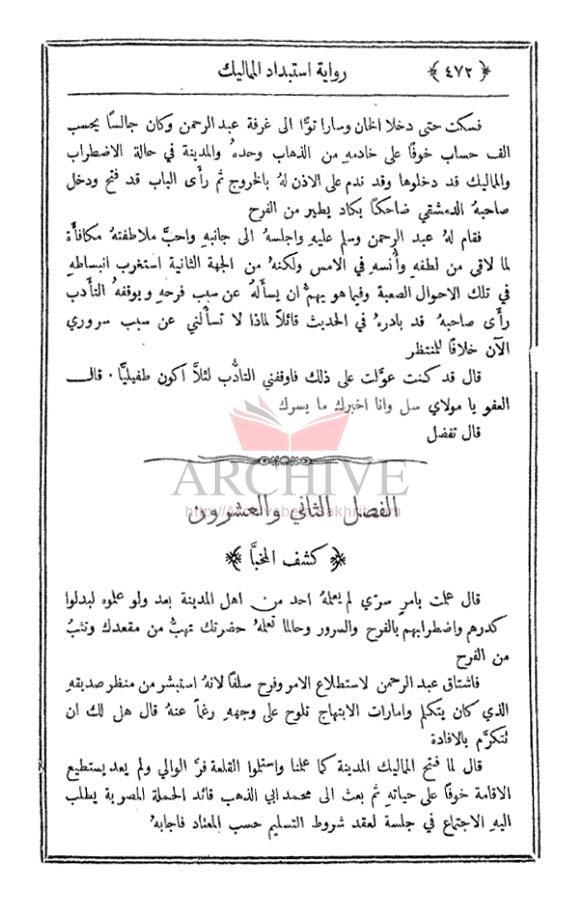 ﴿٤٧٢﴾ رواية استبداد المماليك
فسكت حتى دخلا الخان وسارا توًّا الى غرفة عبد الرحمن وكان جالسًا يحسب
الف حساب خوفًا على خادمهِ من الذهاب وحدهُ والمدينة في حالة الاضطراب
والمماليك قد دخلوها وقد ندم على الاذن لهُ بالخروج ثم رأى الباب قد فتح ودخل
صاحبهُ الدمشقي ضاحكًا يكاد يطير من الفرح
فقام لهُ عبد الرحمن وسلم عليهِ واجلسهُ الى جانبهِ واحبَّ ملاطفتهُ مكافأة
لما لاقى من لطفهِ وأُنسهِ في الامس ولكنهُ من الجهة الثانية استغرب انبساطهِ
في تلك الاحوال الصعبة وفيما هو يهمُّ ان يسألهُ عن سبب فرحهِ ويوقفهُ التأدب
رأى صاحبهُ قد بادرهُ في الحديث قائلاً لماذا لا تسألني عن سبب سروري
الآن خلافًا للمنتظر
قال قد كنت عوَّلت على ذلك فاوقفني التادُّب لئلاَّ أكون طفيليًّا. قال
العفو يا مولاي سل وانا اخبرك ما يسرك
قال تفضل
ARCHIVE
الفصل الثاني والعشرون
﴿ كشف المخبَّا ﴾
قال علمت بامرٍ سرّي لم يعلمهُ احد من اهل المدينة بعد ولو علموه لبدلوا
كدرهم واضطرابهم بالفرح والسرور وحالما تعلمهُ حضرتك تهبُّ من مقعدك وتثبُ
من الفرح
فاشتاق عبد الرحمن لاستطلاع الامر وفرح سلفًا لانهُ استبشر من منظر صديقهِ
الذي كان يتكلم وامارات الابتهاج تلوح على وجههِ رغماً عنهُ قال هل لك ان
تتكرَّم بالافادة
قال لما فتح المماليك المدينة كما علمنا واستلموا القلعة فرَّ الوالي ولم يعد يستطيع
الاقامة خوفًا على حياتهِ ثم بعث الى محمد ابي الذهب قائد الحملة المصرية يطلب
اليهِ الاجتماع في جلسة لعقد شروط التسليم حسب المعتاد فاجابهُ